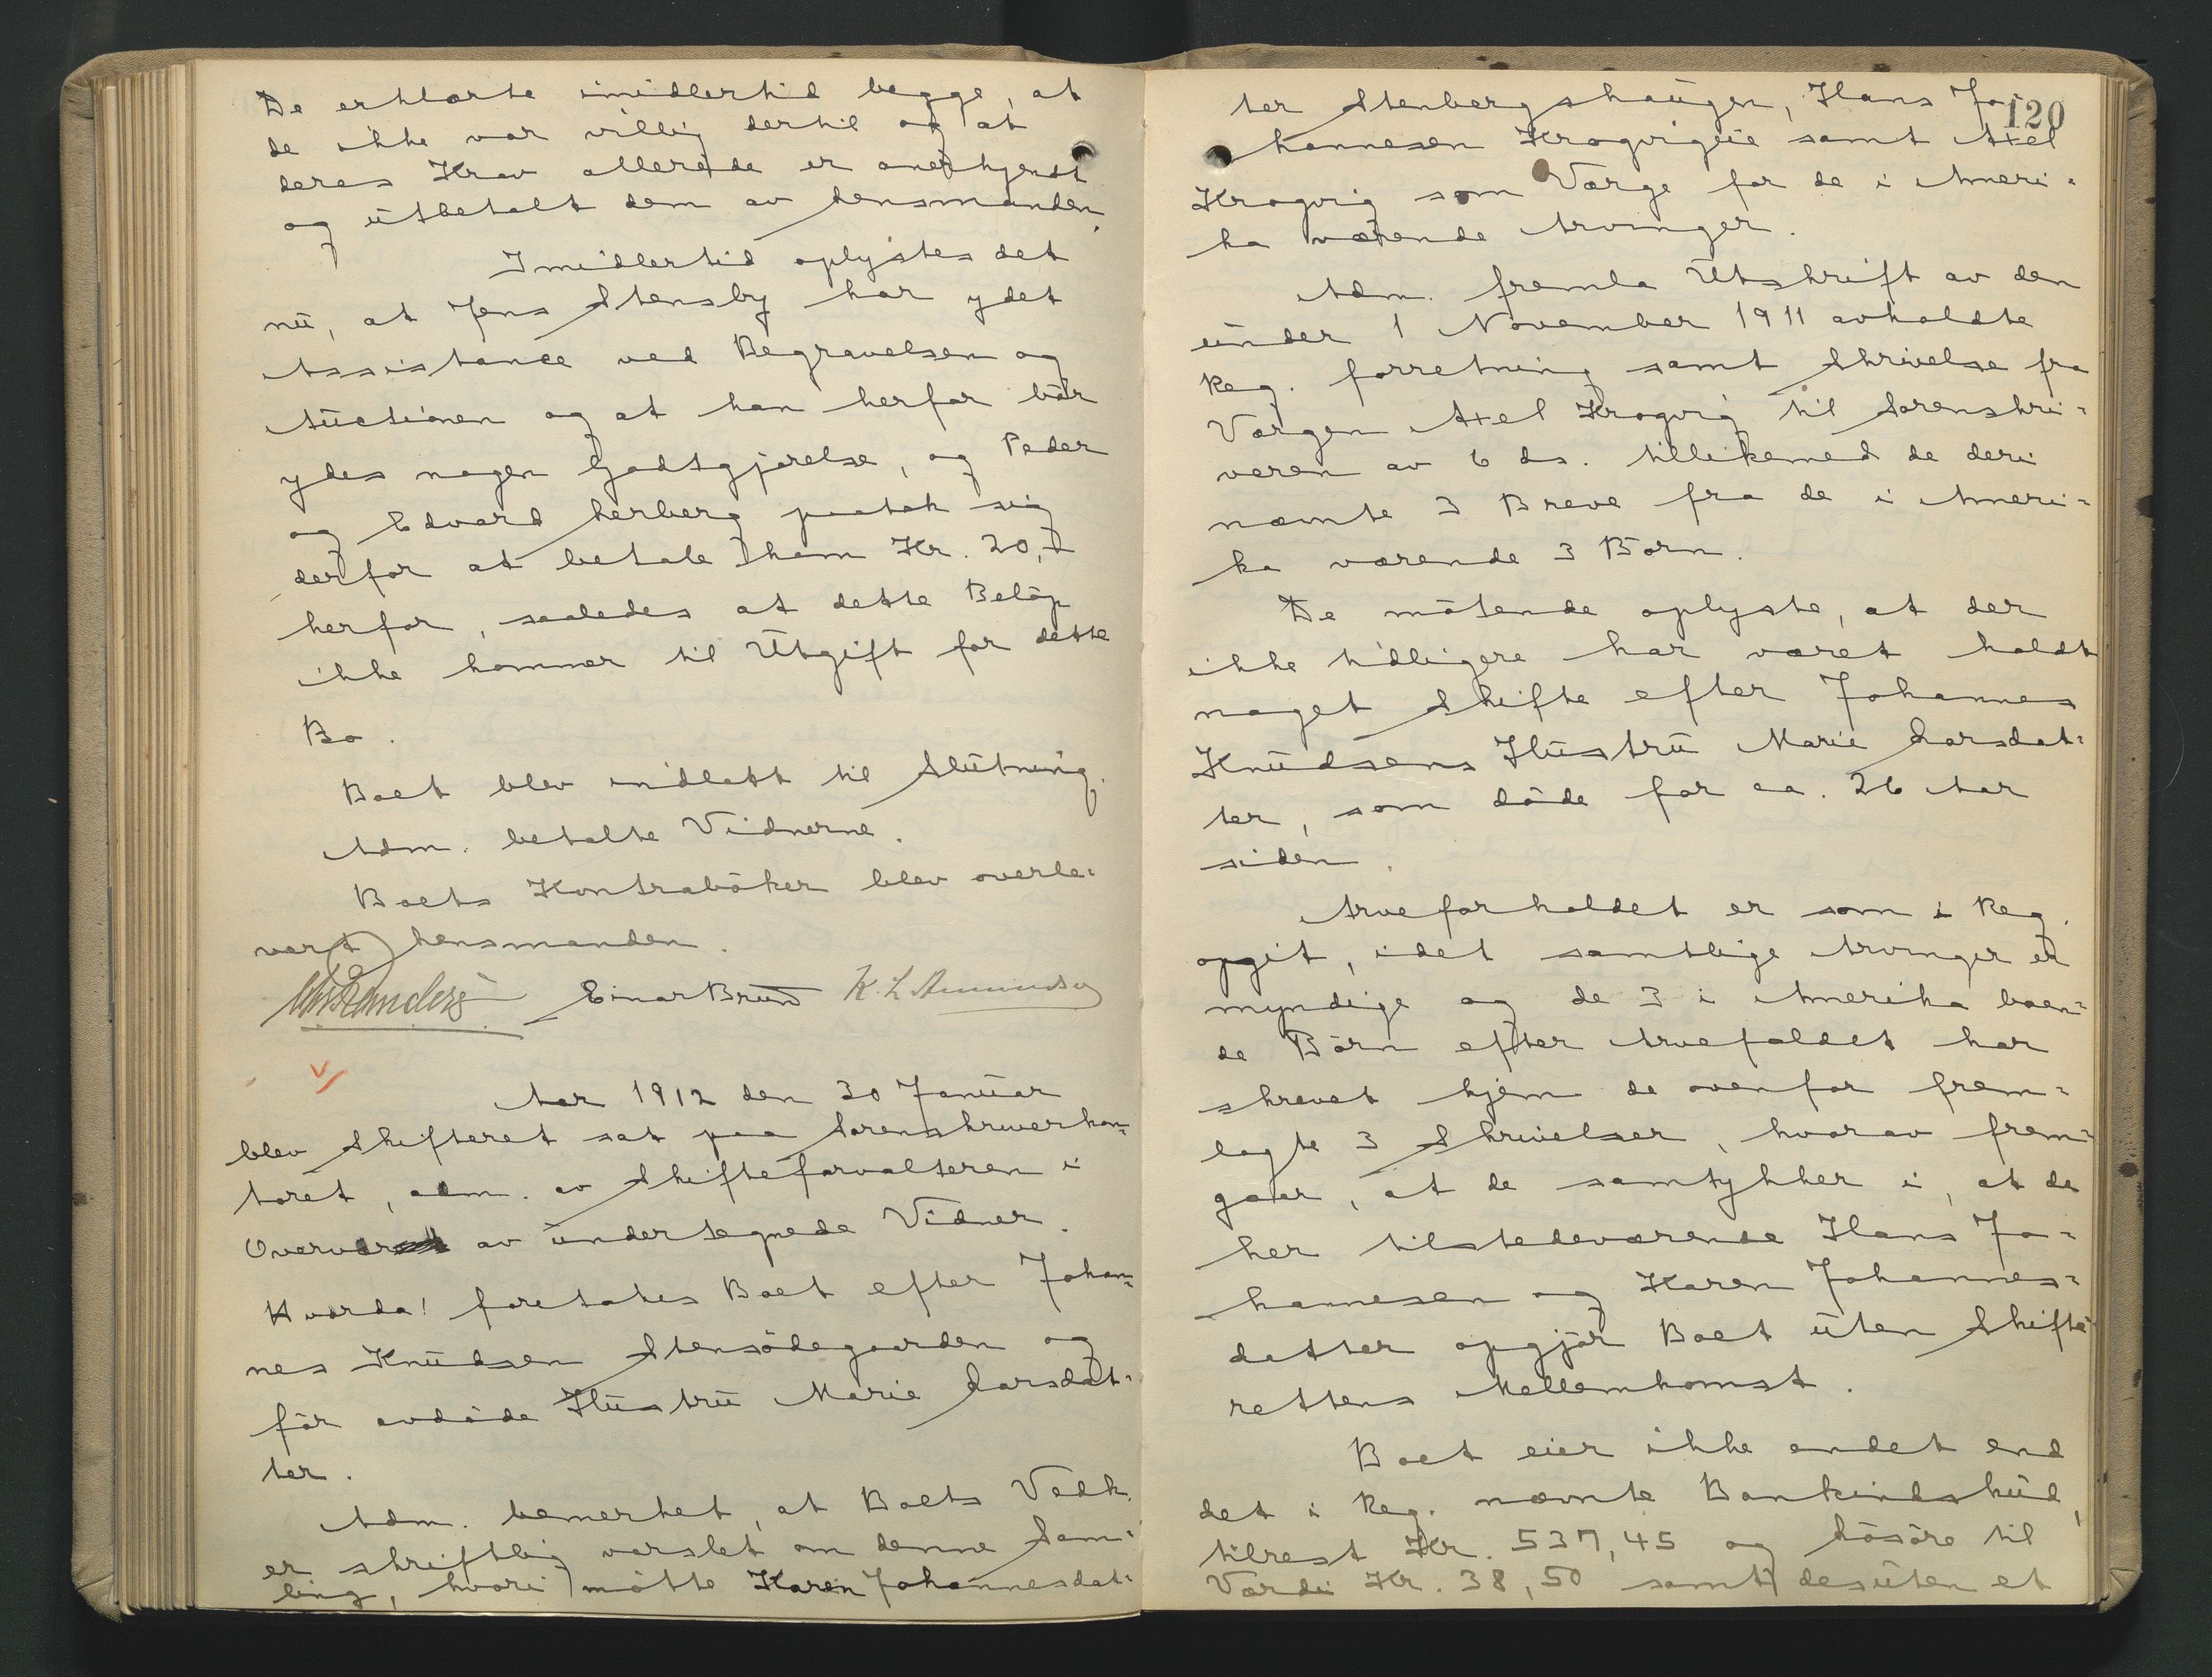 De erklærte imidlertid begge, at
de ikke var villig dertil og at
deres Krav allerede er anerkjendt
og utbetalt dem av Lensmanden.
Imidlertid oplystes det
nu, at Jens Stensby har ydet
Assistance ved Begravelsen og
Auctionen og at han herfor bør
ydes nogen Godtgjørelse, og Peder
og Edvard Lerberg paatok sig
derfor at betale ham Kr. 20,-
herfor, saaledes at dette Beløp
ikke kommer til Utgift for dette
Bo.
Boet blev indlatt til Slutning.
Adm. betalte Vidnerne.
Boets Kontrabøker blev overle=
vert Lensmanden.
Einar Bruu K. L. Amundsen
Aar 1912 den 30 Januar
blev Skifteret sat paa Sorenskriverkon=
toret, adm. av Skifteforvalteren i
Overvær av undertegnede Vidner.
Hvorda! foretokes Boet efter Johan=
nes Knudsen Stensødegaarden og
før avdøde Hustru Marie Larsdat=
ter.
Adm. bemerket, at Boets Vedk.
er skriftlig varslet om denne Sam=
ling, hvori møtte Karen Johannesdat=
120
ter Stenbergshaugen, Hans Jo=
hannesen Krogvigeie samt Axel
Krogvig som Værge for de i Ameri=
ka værende Arvinger.
Adm. fremla Utskrift av den
under 1 November 1911 avholdte
Reg. forretning samt Skrivelse fra
Værgen Axel Krogvig til Sorenskri=
veren av 6 ds. tillikemed de deri
nævnte 3 Breve fra de i Ameri=
ka værende 3 Børn.
De møtende oplyste, at der
ikke tidligere har været holdt
noget Skifte efter Johannes
Knudsens Hustru Marie Larsdat=
ter, som døde for ca. 26 Aar
siden.
Arveforholdet er som i Reg.
opgit, idet samtlige Arvinger er
myndige og de 3 i Amerika boen=
de Børn efter Arvefaldet har
skrevet hjem de ovenfor frem=
lagte 3 Skrivelser, hvorav frem=
gaar, at de samtykker i, at de
her tilstedeværende Hans Jo=
hannesen og Karen Johannes=
datter opgjør Boet uten Skifte=
rettens Mellemkomst.
Boet eier ikke andet end
det i Reg. nævnte Bankindskud,
tilrest Kr. 537,45 og Løsøre til
Værdi Kr. 38,50 samt desuten et